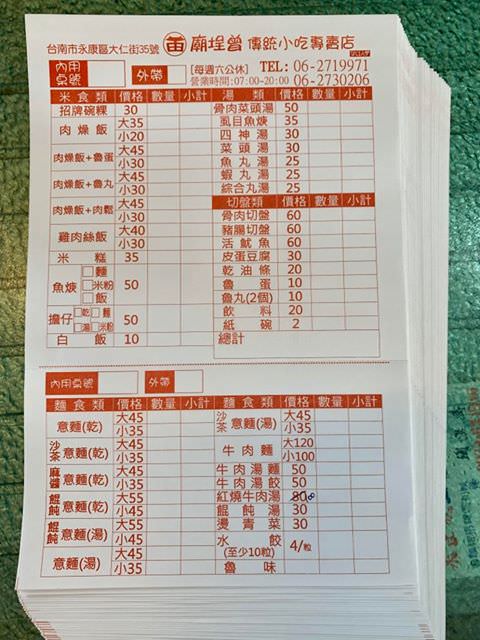 台南市永康區大仁街35號 苗 廟埕曾 傳統小吃專賣店
內用桌號 外帶 [每週六公休] TEL: 06-2719971
營業時間:07:00~20:00 06-2730206
米食類 價格 數量 小計
招牌碗粿 30
肉燥飯 大35 小20
肉燥飯+魯蛋 大45 小30
肉燥飯+魯丸 大45 小30
肉燥飯+肉鬆 大45 小30
雞肉絲飯 大40 小30
米糕 35
魚焿 □麵 □米粉 □飯 50
擔仔 □乾 □麵 □湯 □米粉 50
白飯 10
湯類 價格 數量 小計
骨肉菜頭湯 50
虱目魚焿 35
四神湯 30
菜頭湯 30
魚丸湯 25
蝦丸湯 25
綜合丸湯 25
切盤類 價格 數量 小計
骨肉切盤 60
豬腸切盤 60
活魷魚 60
皮蛋豆腐 30
乾油條 20
魯蛋 10
魯丸(2個) 10
飲料 20
紙碗 2
總計
內用桌號 外帶
麵食類 價格 數量 小計
意麵(乾) 大45 小35
沙茶意麵(乾) 大45 小35
麻醬意麵(乾) 大45 小35
餛飩意麵(乾) 大55 小35
餛飩意麵(湯) 大55 小45
意麵(湯) 大45 小35
麵食類 價格 數量 小計
沙茶意麵(湯) 大45 小35
牛肉麵 大120 小100
牛肉湯麵 50
牛肉湯餃 50
紅燒牛肉湯 80
餛飩湯 30
燙青菜 30
水餃 (至少10粒) 4/粒
魯味